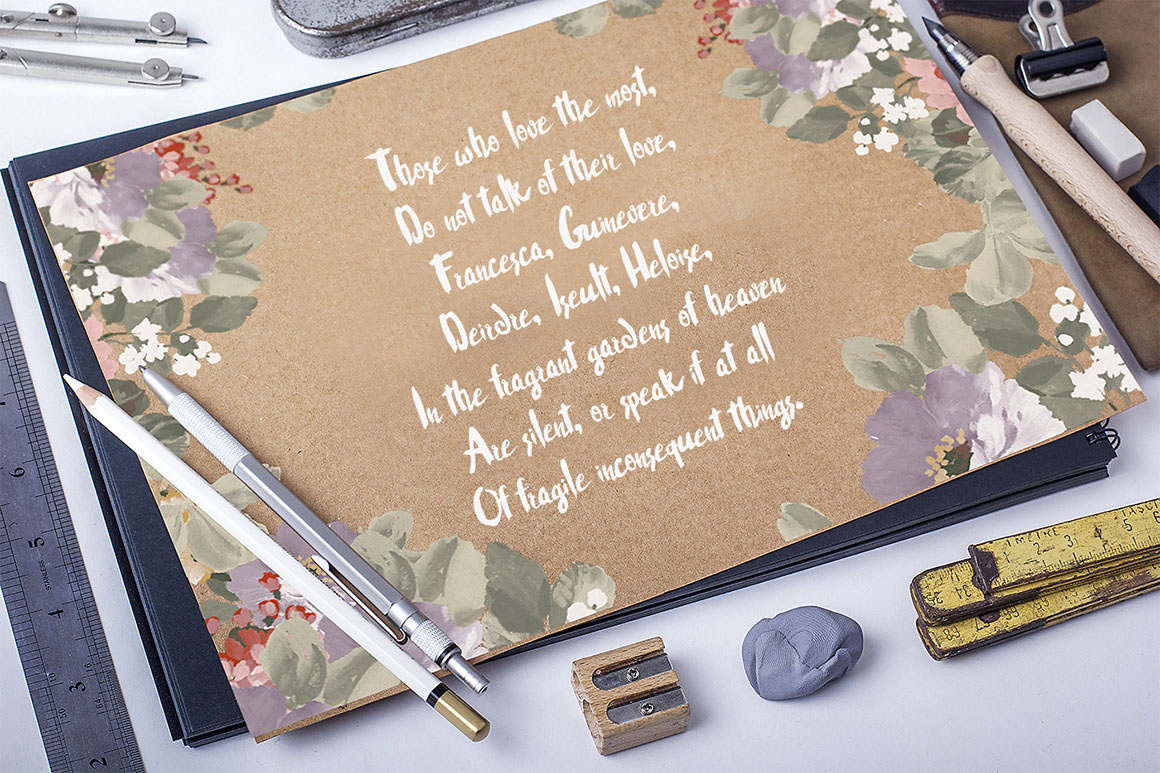 Those who love the most,
Do not talk of their love,
Francesca, Guinevere,
Deirdre, Iseult, Heloise,
In the fragrant gardens of heaven
Are silent, or speak if at all
Of fragile inconsequent things.
6
5
STAINLESS
4
3
2
1 METRE
2 3 5 6